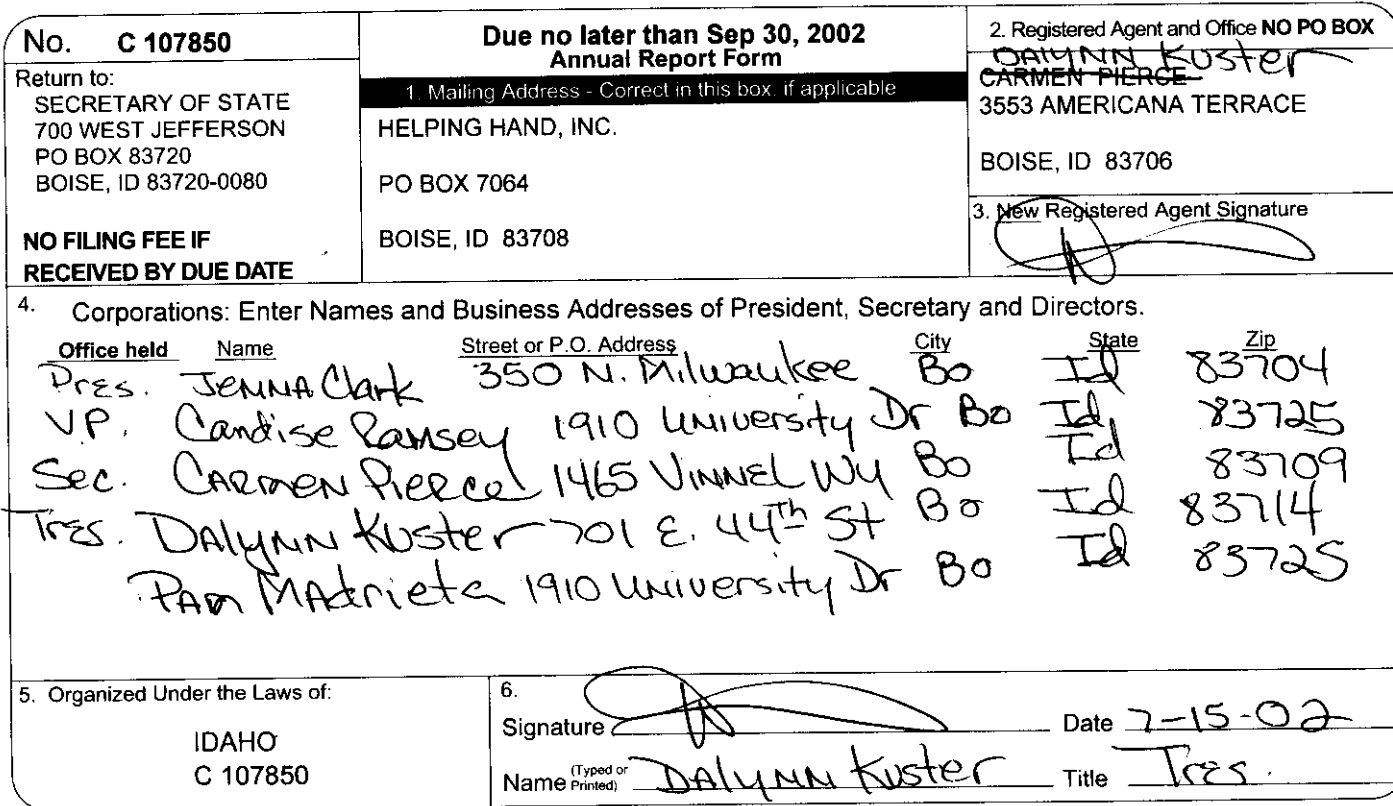 No. C 107850
Return to:
SECRETARY OF STATE
700 WEST JEFFERSON
PO BOX 83720
BOISE, ID 83720-0080
NO FILING FEE IF
RECEIVED BY DUE DATE
Due no later than Sep 30, 2002
Annual Report Form
1. Mailing Address - Correct in this box. if applicable
HELPING HAND, INC.
PO BOX 7064
BOISE, ID 83708
2. Registered Agent and Office NO PO BOX
DALYNN KUSter
CARMEN PIERCE
3553 AMERICANA TERRACE
BOISE, ID 83706
3. New Registered Agent Signature
4. Corporations: Enter Names and Business Addresses of President, Secretary and Directors.
Office held Name Street or P.O. Address City State Zip
Pres. JENNA Clark 350 N. Milwaukee Bo Id 83704
V.P. Candise Ramsey 1910 University Dr Bo Id, 83725
Sec. CARMEN Pierce 1465 VINNEL WY Bo Id 83709
Tres. DALYNN KUSter 701 E. 44th St Bo Id 83714
PAM MAdrieta 1910 University Dr Bo Id 83725
5. Organized Under the Laws of:
IDAHO
C 107850
6.
Signature Date 7-15-02
Name (Typed or Printed) DALYNN KUSter Title Tres.